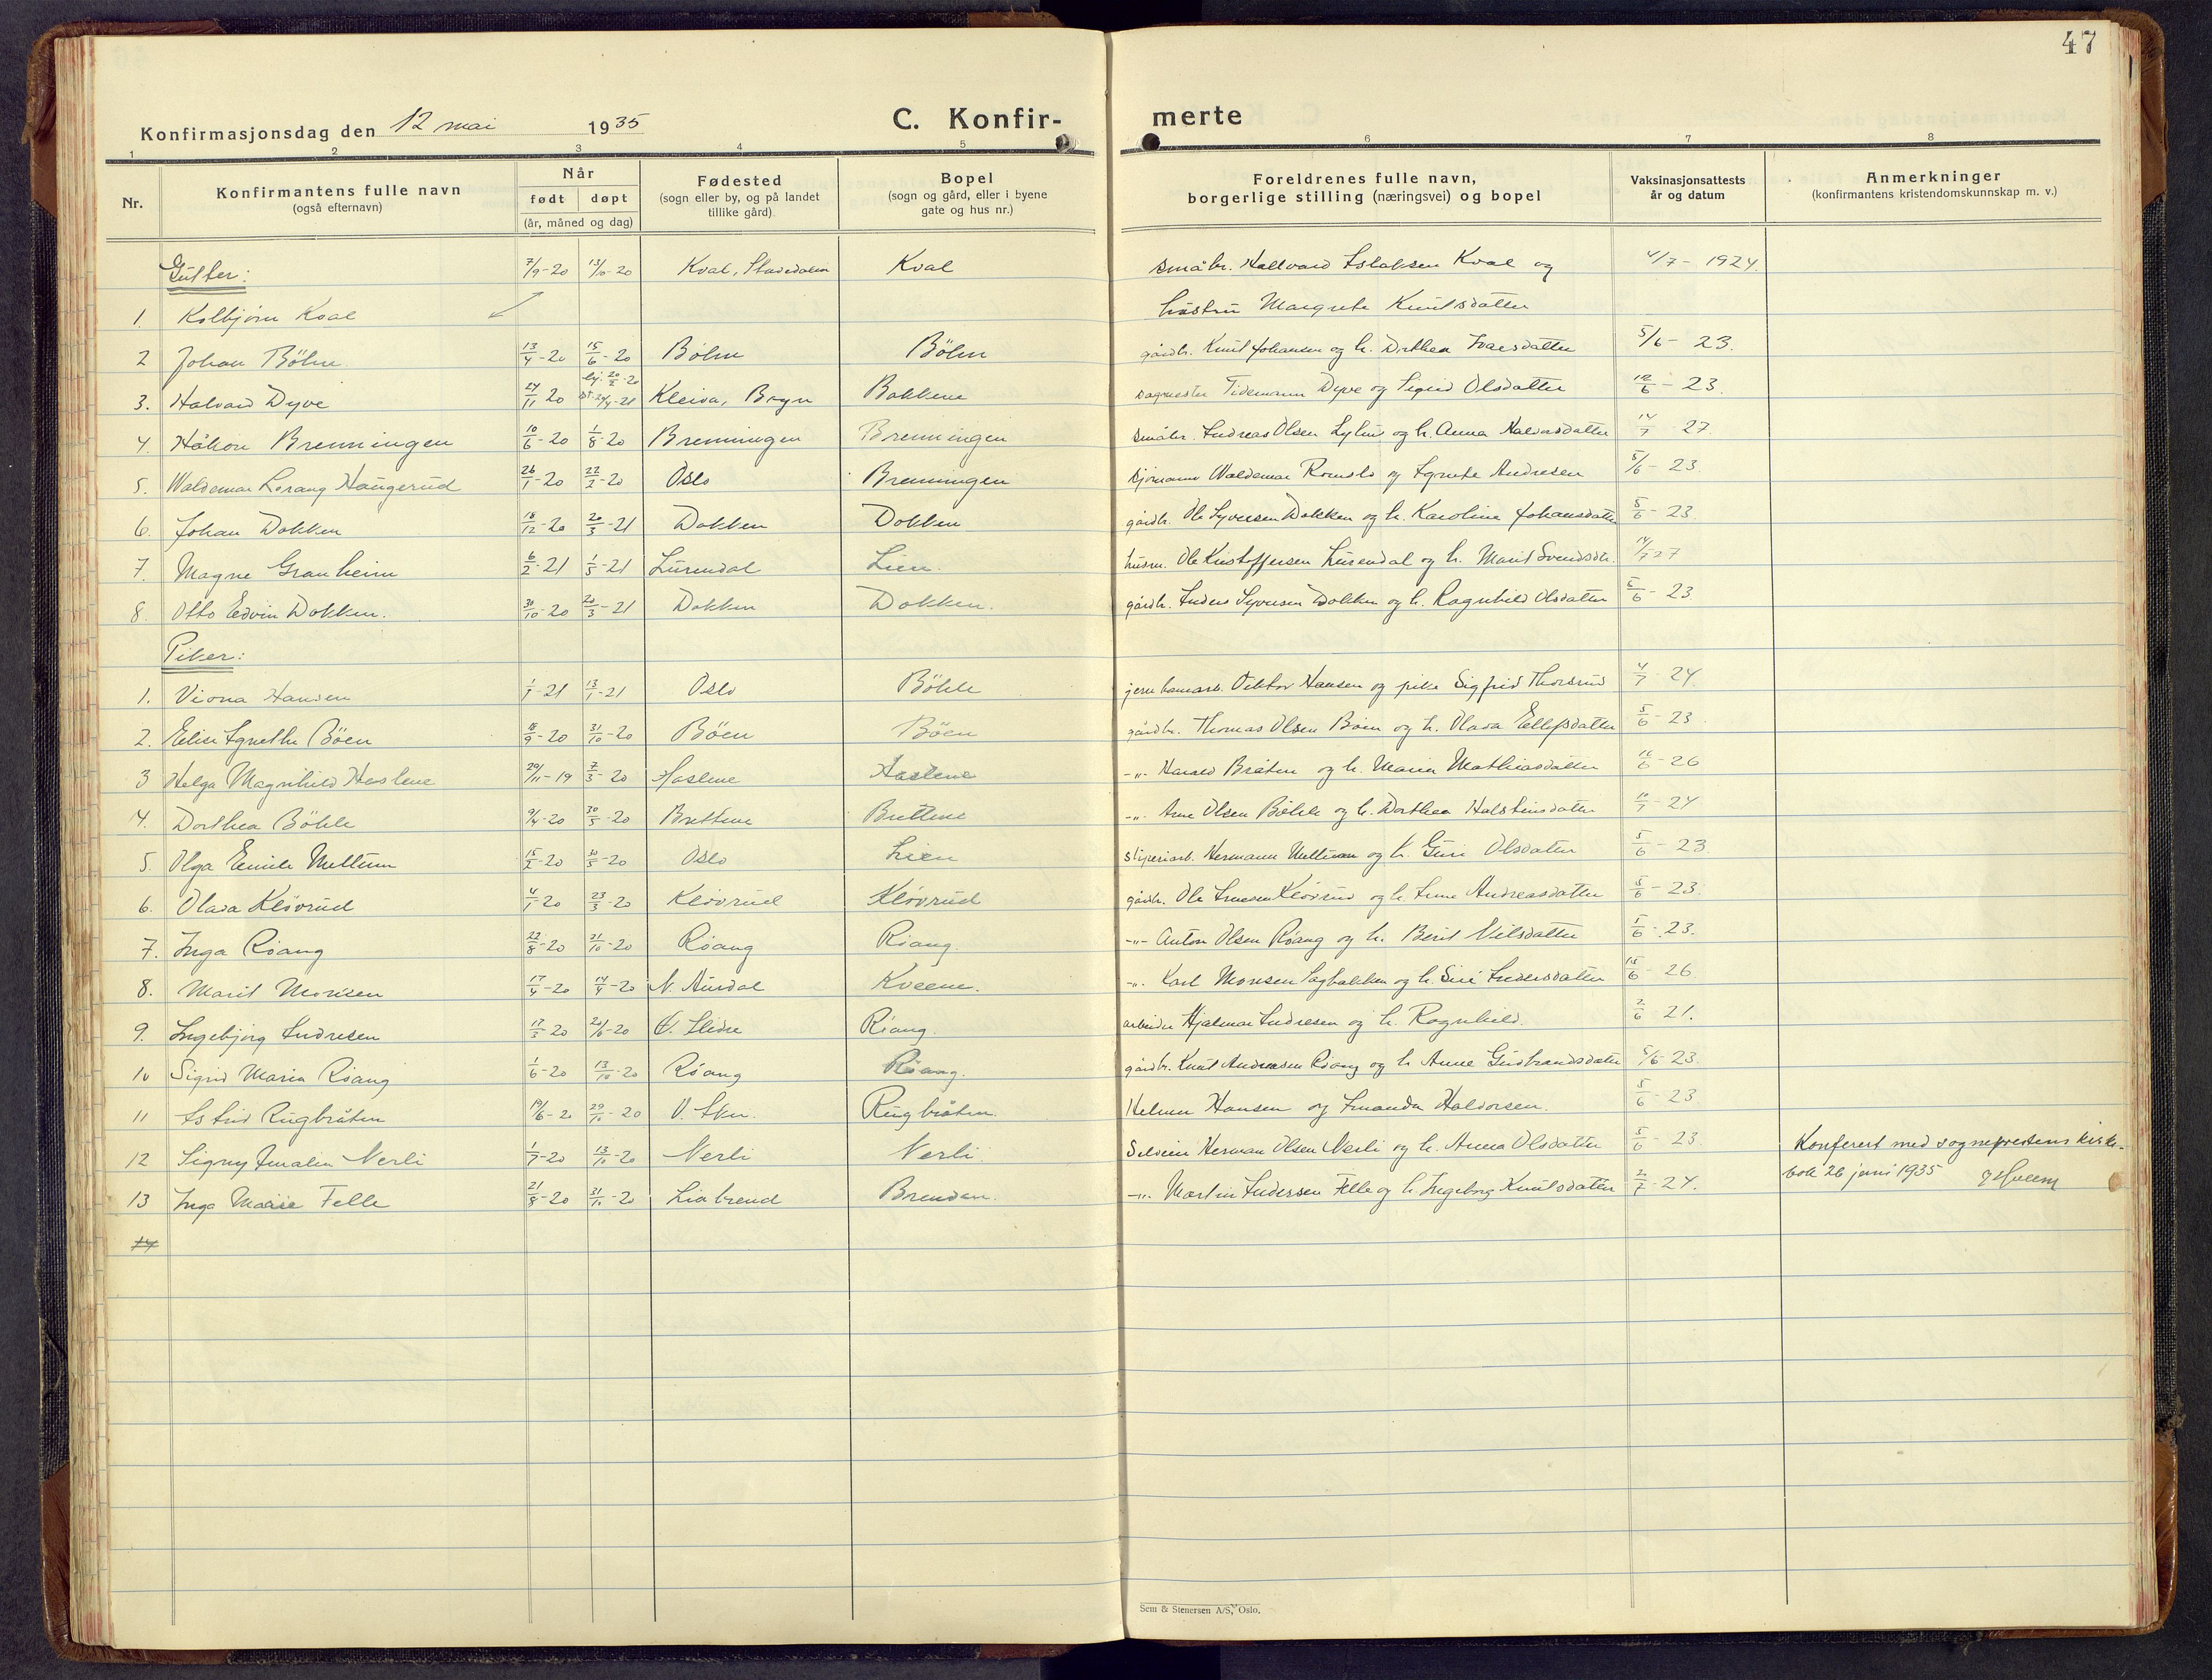 47
Konfirmasjonsdag den 12 mai 1935 C. Konfir- merte
1 2 3 4 5 6 7 8
Nr. Konfirmantens fulle navn (også efternavn) Når født døpt (år, måned og dag) Fødested (sogn eller by, og på landet tillike gård). Bopel (sogn og gård, eller i byene gate og hus nr.) Foreldrenes fulle navn, borgerlige stilling (næringsvei) og bopel Vaksinasjonsattests år og datum Anmerkninger (konfirmantens kristendomskunnskap m. v.)
Gutter: 7/9-20 Kval, Kval småbr. Hallvard Islaksen Kval og 4/7- 1924.
1. Kolbjørn Kval hustru Margrete Knutsdatter
2 Johan Böhn 13/4-20 15/6-20 Böhn Böhn gårdbr. Knut Johansen og h. Dorthea Ivarsdatter 5/6- 23.
3. Halvard Dyve 24/11 20 Kleiva, Bagn Bakkene Tidemann Dyve og Sigrid Olsdatter 12/6- 23.
4. Håkon Brenningen 10/6-20 1/8-20 Brenningen Brenningen småbr. Andreas Olsen og h. Anna Halvorsdatter 14/7 27
5. Waldemar Lorang Haugerud 26/1-20 22/2-20 Oslo Brenningen sjømann Waldemar Romslo og Agnete Andresen 5/6- 23.
6. Johan Dokken 18/12-20 20/3-21 Dokken Dokken gårdbr. Ole Syversen Dokken og h. Karoline Johansdatter 5/6- 23.
7. Magne Granheim 6/2-21 1/5-21 Lurendal Lien. husm. Ole Kristoffersen Lurendal og h. Marit Svendsdtr. 14/7 27
8. Otto Edvin Dokken. 30/10-20 20/3-21 Dokken Dokken. gårdbr. Anders Syversen Dokken og h. Ragnhild Olsdatter 5/6- 23.
Piker:
1. Viona Hansen 1/1-21 13/1-21 Oslo Böhle jernbanearb. Viktor Hansen og pike Sigfrid Thorsrud 4/7 24.
2. Elise Agnethe Böen 18/9-20 31/10-20 Böen Böen gårdbr. Thomas Olsen Böen og h. Olava Ellefsdatter 5/6- 23.
3 Helga Magnhild Haslene 29/11-19 7/3-20 Haslene Haslene -"- Harald Bråten og h. Maria Mathiasdatter 26
4. Dorthea Böhle 9/4-20 30/5-20 Brettene Brettene -"- Arne Olsen Böhle og h. Dorthea Halstensdatter 24
5. Olga Emilie Mellum 15/2-20 30/5-20 Oslo Lien sliperiarb. Hermann Mellum og h. Guri Olsdatter 5/6- 23.
6. Olava Klövrud 4/1 20 23/3-20 Klövrud Klövrud gårdbr. Ole Arnesen Klövrud og h. Anne Andreasdatter 5/6- 23.
7. Inga Röang 22/8-20 31/10-20 Röang Röang. -"- Anton Olsen Röang og h. Berit Nilsdatter 5/6- 23.
8. Marit Moresen 17/4-20 N. Aurdal Kveene. -"- Karl Moresen Sagbakken og h. Siri Andersdatter 15/6- 26.
9. Ingebjørg Andresen 17/3-20 20/6-20 Slidre Röang. arbeider Hjalmar Andresen og h. Ragnhild. 2/6 21.
10 Sigrid Maria Röang 1/6-20 13/10-20 Röang Röang. gårdbr. Knut Andreasen Röang og h. Anne Gudbrandsdatter 5/6-23
11 Astrid Rugbråten 19/6-20 29/10-20 V. Aker. Rugbråten. Helmer Hansen og Amanda Halvorsen. 5/6- 23
12 Signy Amalia Nerli 1/7-20 13/10-20 Nerli Nerli. Selveier Herman Olsen Nerli og h. Anna Olsdatter 5/6- 23. Konferert med sogneprestens kirke-
13 Inga Marie Felle 21/8-20 31/10-20 Liabrend Brenden. -"- Martin Andersen Felle og h. Ingeborg Knutsdatter 2/7- 24. bok 26 juni 1935
14
Sem & Stenersen A/S, Oslo.